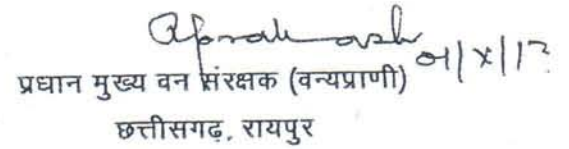 प्रधान मुख्य वन संरक्षक (वन्यप्राणी)
छत्तीसगढ़, रायपुर